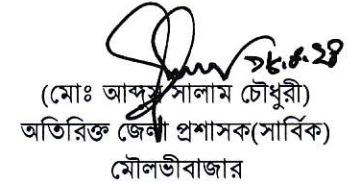 ১৮.৪.২৪
(মোঃ আব্দুস সালাম চৌধুরী)
অতিরিক্ত জেলা প্রশাসক(সার্বিক)
মৌলভীবাজার